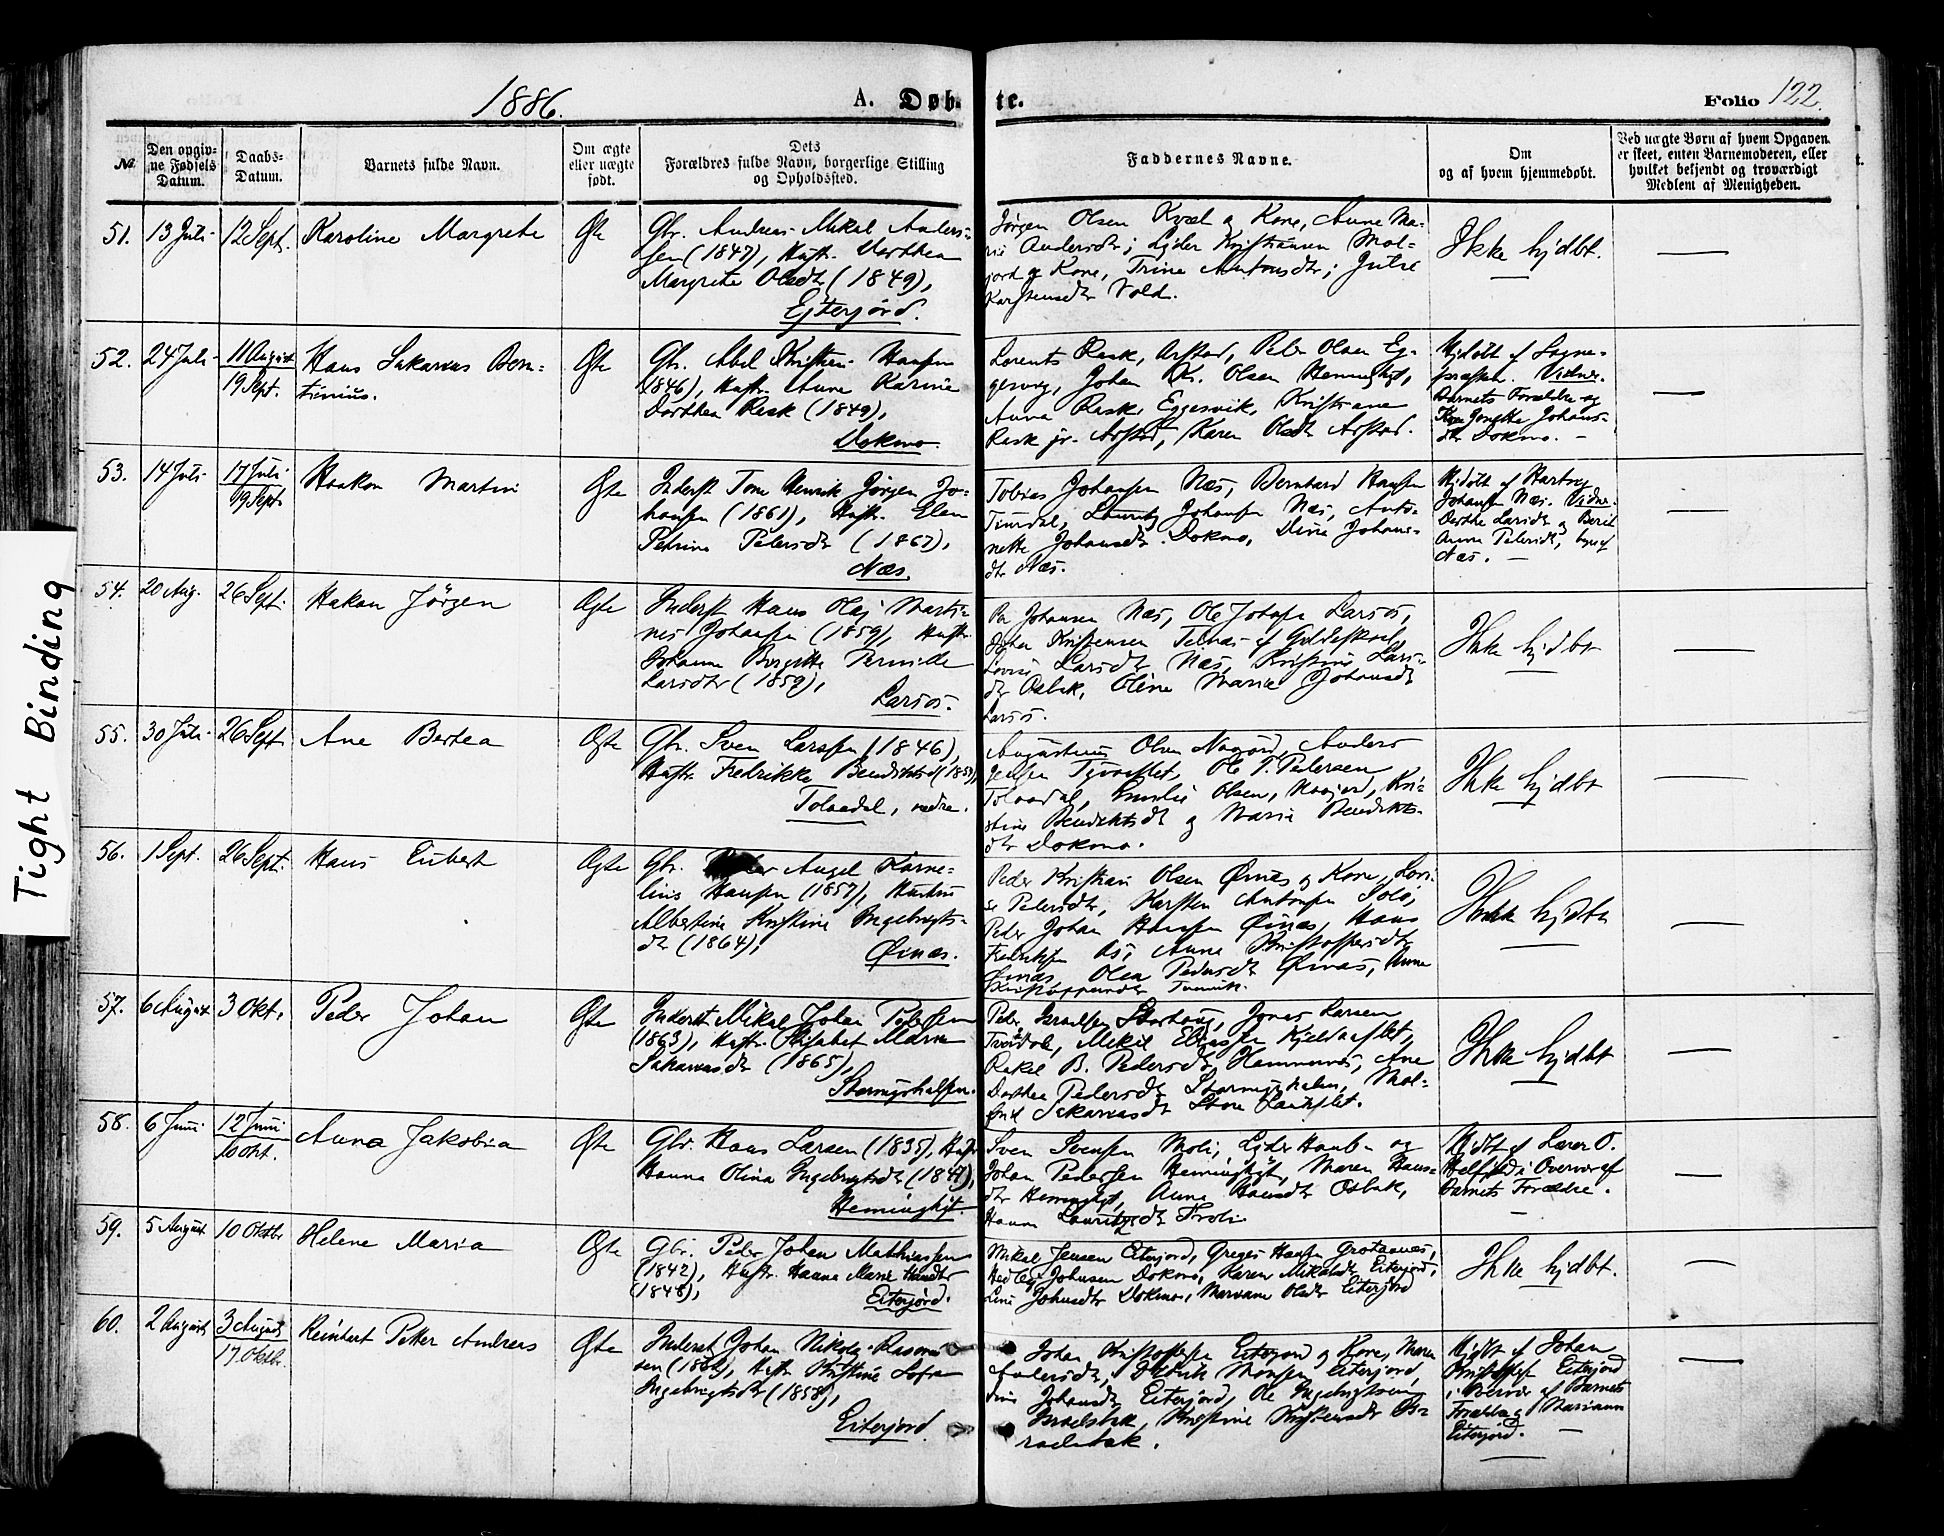 1886.
A. Døb-
te.
Folio 122.
№
Den opgiv-
ne Fødsels
Datum.
Daabs-
Datum.
Barnets fulde Navn.
Om ægte
eller uægte
født.
Dets
Forældres fulde Navn, borgerlige Stilling
og Opholdssted.
Faddernes Navne.
Om
og af hvem hjemmedøbt.
Ved uægte Børn af hvem Opgaven
er skeet, enten Barnemoderen, eller
hvilket bekjendt og troværdigt
Medlem af Menigheden.
Tight Binding
51. 13 Juli 12 Sept. Karoline Margrete Ægte
Gbr. Andreas Mikal Anders-
sen (1847), Hustr. Dorthea
Margrete Olsdtr (1849),
Ejterjord.
Jørgen Olsen Kvæl og Kone, Anne Ma-
rie Andersdtr; Ejder Kristiansen Mol-
jord og Kone, Trine Antonsdtr; Julie
Karstensdtr Vold.
Ikke hjdbt.
52. 24 Juli 11 August
19 Sept.
Hans Sakarias Ben-
Ægte
Gbr. Abel Kristian Hansen
(1846), Hustr. Anne Karine
Dorthea Rask (1849),
Dokmo.
Lorents Rask, Arstad, Peder Olsen Eg-
gesvig, Johan Kr. Olsen
Anna Rask, Eggesvik, Kristiane
Rask jr. Arstad, Karen Olsdtr Arstad.
Hjdbt af Sogne-
præsten. Vidner.
Barnets Forældre og
Johans-
dtr Dokmo.
53. 14 Juli 17 Juli
19 Sept.
Haakon Martin Ægte
Inderst Tom Henrik Jørgen Jo-
hansen (1861), Hustr. Elen
Petrine Pedersdtr (1867),
Næs.
Tobias Johansen Næs, Bernhard Hansen
Lauritz Johansen Næs, Anto-
nette Johansdtr Dokmo, Dine Johans-
dtr Næs.
Hjdbt af Hartvig
Johansen Næs. Vidner
Dorthe Larsdtr og Berit
Anna Pedersdtr, begge af
Næs.
54. 20 Aug. 26 Sept. Hakon Jörgen Ægte
Inderst Hans Olaj Marti-
nus Johansen (1859), Hustr.
Johanna Birgitte Pernille
Larsdtr (1859),
Larsos.
Per Johansen Næs, Ole Johansen Larsos,
Johan Kristensen Telnæs af Gildeskaal,
Lovise Larsdtr Næs, Kristine Lars-
dtr Osbak, Oline Marie Johansdtr
Larsos.
Ikke hjdbt
55. 30 Juli 26 Sept. Ane Bertea Ægte
Gbr. Sven Larssen (1846),
Hustr. Fredrikke Benditsd
Tolaadal, nedre.
Augustinus Olsen Navjord, Anders
Jensen Tverflet, Ole P. Pedersen
Tolaadal, Emilie Olsen, Navjord, Kri-
stine Benditsdt og Marie Benedikts-
dtr Dokmo.
Ikke hjdbt
56. 1 Sept. 26 Sept. Hans Eubert Ægte
Gbr. Peder Angel Karne-
lius Hansen (1857), Hustru
Albertine Kristine Ingebrigts-
dtr (1864),
Øinæs.
Peder Kristian Olsen Øinæs og Kone, Lovi-
se Pedersdtr, Karsten Antonsen Solø,
Peder Johan Hansen Øinæs, Hans
Fredriksen Ås, Anne Kristoffersdtr
Øinæs, Olea Pedersdtr Øinæs, Anne
Kristoffersdtr
Ikke hjdbt
57. 6 August 3 Okt. Peder Johan Ægte
Inderst Mikal Johan Pedersen
(1863), Hustr. Elisabet Marie
Sakariasdtr (1865),
Peder Israelsen Storhaug, Jonas Larsen
Tverdal, Mikal Eliassen
Rakel B. Pedersdtr, Hammernes, Ane
Dorthea Pedersdtr Mol-
Sakariasdtr
Ikke hjdbt
58. 6 Juni 12 Juni
10 Okt.
Anna Jakobia Ægte
Gbr. Hans Larsen (1835), Hustr
Hanna Olina Ingebrigtsdtr (1847),
Heminghyt.
Sven Svensen Moli, Ejder og
Johan Pedersen Heminghyt, Maren Hans-
dtr Hemnighyt, Anna Hansdtr Osbak,
Hanna Lauritzdtr Troli
Hjdbt af Lærer O.
i Overvær af
Barnets Forældre.
59. 5 August 10 Oktbr Helene Maria Ægte
Gbr. Peder Johan Mathiassen
(1842), Hustr. Hanna Marie
(1848),
Eiterjord.
Mikal Jensen Eiterjord, Greger Hansen Grotaanæs,
Johnsen Dokmo, Karen Mikalsdtr Eiterjord,
Line Johnsdtr Dokmo, Mariane Olsdtr Eiterjord
Ikke hjdbt.
60. 2 August 3 August
17 Oktbr.
Reinhart Petter Andreas Ægte
Inderst Johan Nikolaj
Hustr Kristine Sofie
Ingebrigtsdtr (1858),
Eiterjord
Johan Kristoffersen Eiterjord og Kone, Maren
Andersdtr, Hansen Eiterjord,
Johansdtr Eiterjord, Ole Ingebrigtsen
Israelsbak, Kristine Kristensdtr Is-
raelsbak.
Hjdbt af Johan
Kristoffersen Eiterjord
i Overvær af Barnets
Forældre og Mariane
Eiterjord.